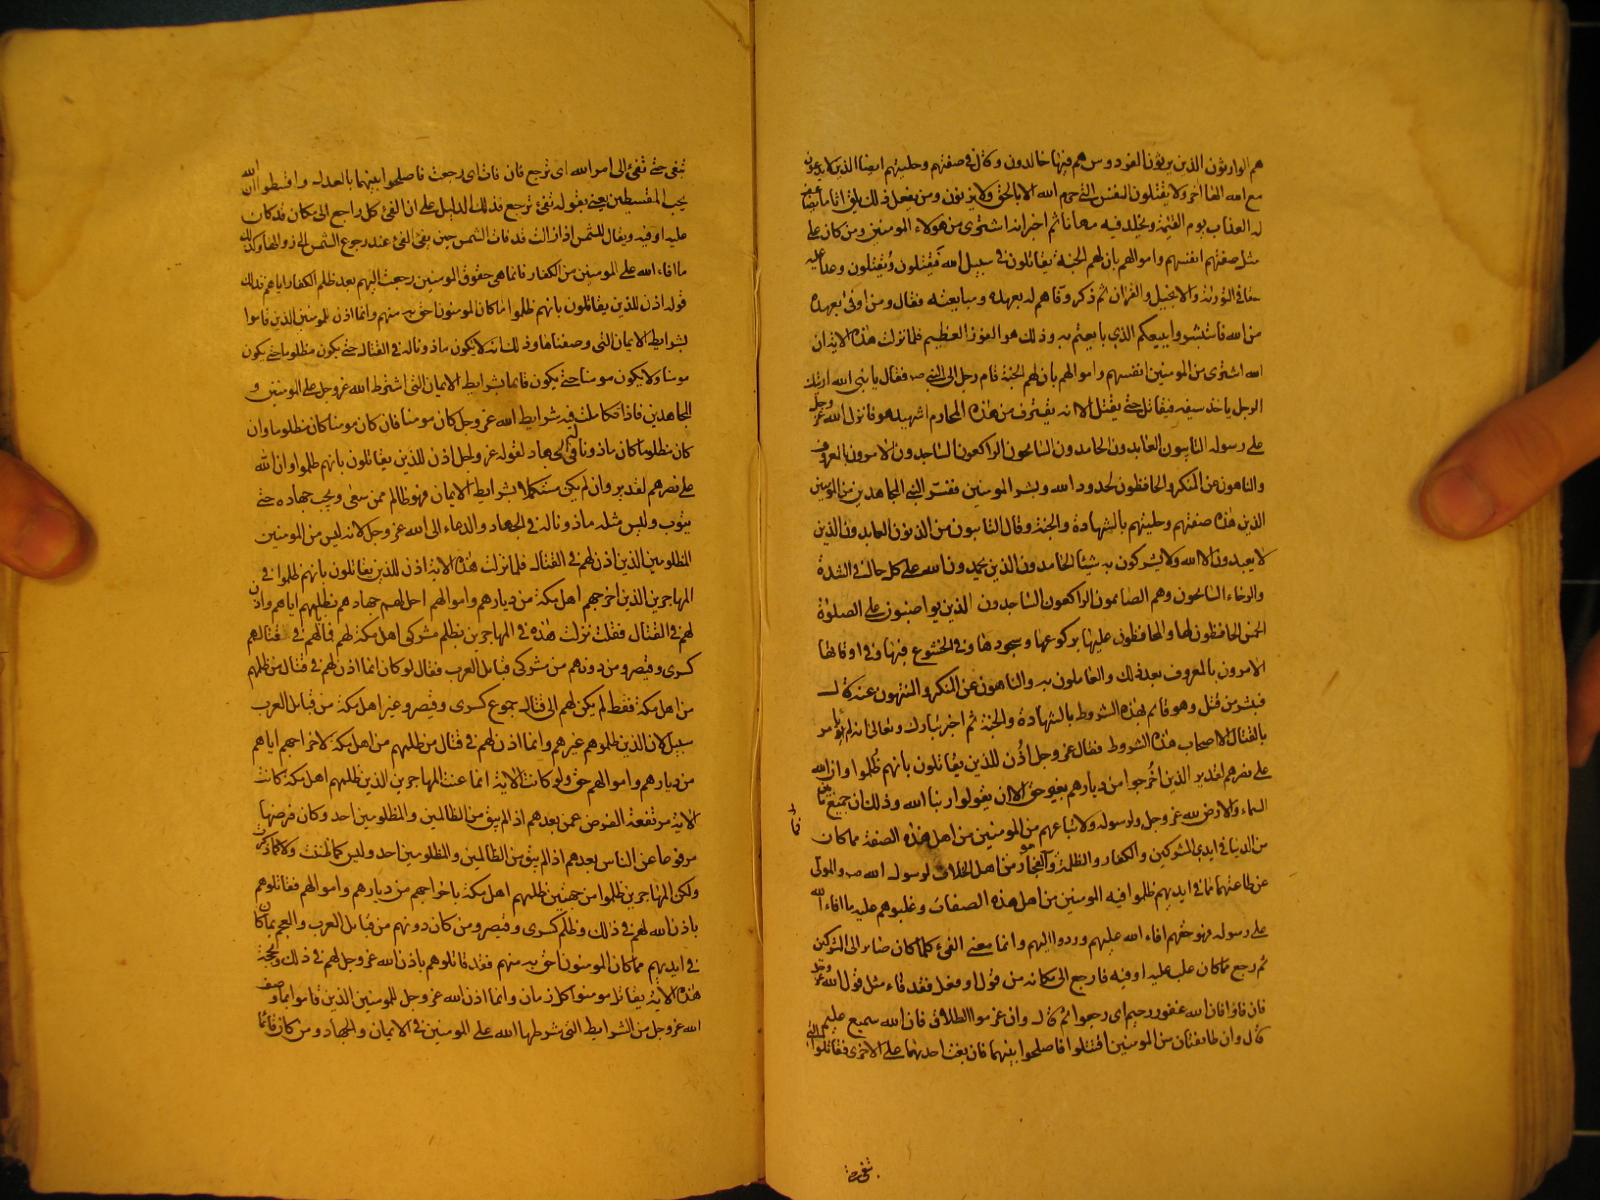 هم الوارثون الذين يرثون الفردوس هم فيها خالدون وقال في صفتهم وحليتهم ايضا الذين لا يدعون
مع الله الها آخر ولا يقتلون النفس التي حرم الله الا بالحق ولا يزنون ومن يفعل ذلك يلق اثاما يضاعف
له العذاب يوم القيمة ويخلد فيه مهانا ثم اخبر انه اشترى من هولاء المومنين ومن كان على
مثل صفتهم انفسهم واموالهم بان لهم الجنة يقاتلون في سبيل الله فيقتلون ويقتلون وعدا عليه
حقا في التورية والانجيل والقران ثم ذكر وفاهم له بعهده ومبايعته فقال ومن اوفى بعهده
من الله فاستبشروا ببيعكم الذي بايعتم به وذلك هو الفوز العظيم فلما نزلت هذه الاية ان
الله اشترى من المومنين انفسهم واموالهم بان لهم الجنة قام رجل الى النبي ص فقال يا نبي الله ارايتك
الرجل ياخذ سيفه فيقاتل حتى يقتل الا انه يقترف من هذه المحارم اشهيد هو فانزل الله عز وجل
على رسوله التايبون العابدون الحامدون السائحون الراكعون الساجدون الامرون بالمعروف
والناهون عن المنكر والحافظون لحدود الله وبشر المومنين ففسر النبي المجاهدين من المومنين
الذين هذه صفتهم وحليتهم بالشهادة والجنة وقال التايبون من الذنوب العابدون الذين
لا يعبدون الا الله ولا يشركون به شيئا الحامدون الذين يحمدون الله على كل حال في الشدة
والرخاء السائحون وهم الصائمون الراكعون الساجدون الذين يواضبون على الصلوة
الخمس الحافظون لها والمحافظون عليها بركوعها وسجودها وفي الخشوع فيها وفي اوقاتها
الامرون بالمعروف بعد ذلك والعاملون به والناهون عن المنكر والمنتهون عنه قال
فبشر من قتل وهو قائم بهذه الشروط بالشهادة والجنة ثم اخبر تبارك وتعالى انه لم يامر
بالقتال الا اصحاب هذه الشروط فقال عز وجل اذن للذين يقاتلون بانهم ظلموا وان الله
على نصرهم لقدير الذين اخرجوا من ديارهم بغير حق الا ان يقولوا ربنا الله وذلك ان جميع ما بين
السماء والارض لله عز وجل ولرسوله ولاتباعهم من المومنين من اهل هذه الصفة مما كان
من الدنيا في ايدي المشركين والكفار والظلمة والفجار من اهل الخلاف لرسول الله ص والمولى
عن طاعتهما مما في ايديهم ظلموا فيه المومنين من اهل هذه الصفات وغلبوهم عليه ما افاء الله
على رسوله فهو حقهم افاء الله عليهم ورده اليهم وانما معنى الفيء كلما كان صار الى المشركين
ثم رجع مما كان غلب عليه او فيه فما رجع الى مكانه من قول او فعل فقد فاء مثل قول الله عز وجل
فان فاؤا فان الله غفور رحيم اى رجعوا ثم قال وان عزموا الطلاق فان الله سميع عليم
قال وان طايفتان من المومنين اقتتلوا فاصلحوا بينهما فان بغت احديهما على الاخرى فقاتلوا التي
تبغي حتى
تبغي حتى تفيء الى امر الله اى ترجع فان فاءت اى رجعت فاصلحوا بينهما بالعدل واقسطوا ان الله
يحب المقسطين يعني بقوله تفيء ترجع فذلك الدليل على ان الفيء كل راجع الى مكان قد كان
عليه او فيه ويقال للشمس اذا زالت قد فاءت الشمس حين يفيء الفيء عند رجوع الشمس الى زوالها وكذلك
ما افاء الله على المومنين من الكفار فانما هي حقوق المومنين رجعت اليهم بعد ظلم الكفار اياهم فذلك
قوله اذن للذين يقاتلون بانهم ظلموا ما كان المومنون احق به منهم وانما اذن للمومنين الذين قاموا
بشرايط الايمان التي وصفناها وذلك انه لا يكون ماذونا له في القتال حتى يكون مظلوما حتى يكون
مومنا ولا يكون مومنا حتى يكون قائما بشرايط الايمان التي اشترط الله عز وجل على المومنين و
المجاهدين فاذا تكاملت فيه شرايط الله عز وجل كان مومنا فان كان مومنا كان مظلوما وان
كان مظلوما كان ماذونا في الجهاد لقوله عز وجل اذن للذين يقاتلون بانهم ظلموا وان الله
على نصرهم لقدير وان لم يكن مستكملا بشرايط الايمان فهو ظالم ممن سعى ويجب جهاده حتى
يتوب وليس مثله ماذونا له في الجهاد والدعاء الى الله عز وجل لانه ليس من المومنين
المظلومين الذين اذن لهم في القتال فلما نزلت هذه الاية اذن للذين يقاتلون بانهم ظلموا في
المهاجرين الذين اخرجهم اهل مكة من ديارهم واموالهم احل لهم جهادهم بظلمهم اياهم واذن
لهم في القتال فقلت نزلت هذه في المهاجرين بظلم مشركي اهل مكة لهم فما لهم في قتالهم
كسرى وقيصر ومن دونهم من مشركي قبائل العرب فقال لو كان انما اذن لهم في قتال من ظلمهم
من اهل مكة فقط لم يكن لهم الى قتال جموع كسرى وقيصر وغير اهل مكة من قبائل العرب
سبيل لان الذين ظلموهم غيرهم وانما اذن لهم في قتال من ظلمهم من اهل مكة لاخراجهم اياهم
من ديارهم واموالهم حق ولو كانت الاية انما عنت المهاجرين الذين ظلمهم اهل مكة كانت
الاية مرتفعة الفرض عمن بعدهم اذ لم يبق من الظالمين والمظلومين احد وكان فرضها
مرفوعا عن الناس بعدهم اذ لم يبق من الظالمين والمظلومين احد وليس كما ظننت ولا كما ذكرت
ولكن المهاجرين ظلموا من جهتين ظلمهم اهل مكة باخراجهم من ديارهم واموالهم فقاتلوهم
باذن الله لهم في ذلك وظلمهم كسرى وقيصر ومن كان دونهم من قبائل العرب والعجم بما كان
في ايديهم مما كان المومنون احق به منهم فقد قاتلوهم باذن الله عز وجل لهم في ذلك وبحجة
هذه الاية يقاتل مومنوا كل زمان وانما اذن الله عز وجل للمومنين الذين قاموا بما وصف
الله عز وجل من الشرايط التي شرطها الله على المومنين في الايمان والجهاد ومن كان قائما